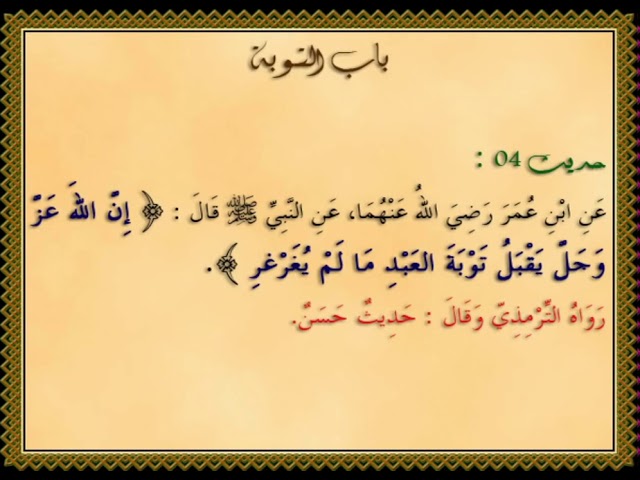 باب التوبة
حديث 04 :
عَنِ ابْنِ عُمَرَ رَضِيَ اللهُ عَنْهُمَا، عَنِ النَّبِيِّ ﷺ قَالَ : ﴿ إِنَّ اللهَ عَزَّ
وَحَلَّ يَقْبَلُ تَوْبَةَ العَبْدِ مَا لَمْ يُغَرْغرِ ﴾.
رَوَاهُ التِّرْمِذِيّ وَقَالَ : حَدِيثٌ حَسَنٌ.